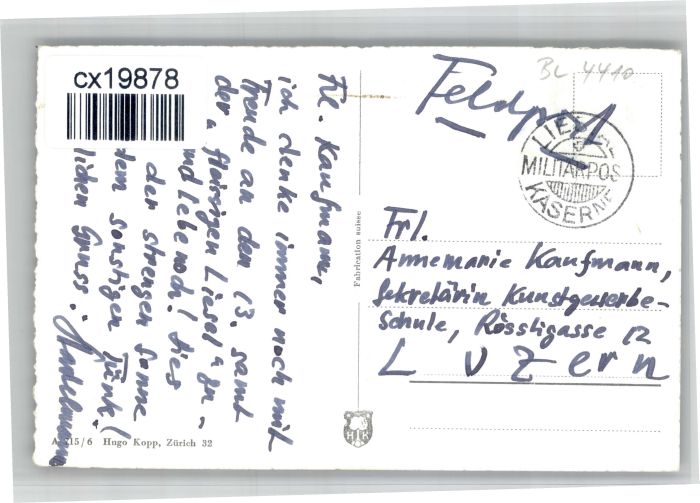 cx19878
BL 4410
Feldpost
LIESTAL
MILITÄRPOST
KASERNE
Frl. Kaufmann,
ich denke immer noch mit
Freude an den 13. samt
der fleissigen Liesel
und lebe noch! dies
der strengen Sonne
dem sonstigen
lichen Gruss.
Frl.
Annemarie Kaufmann,
Sekretärin Kunstgewerbe-
Schule, Rössligasse 12
Luzern
Fabrication suisse
HK
15/6 Hugo Kopp, Zürich 32